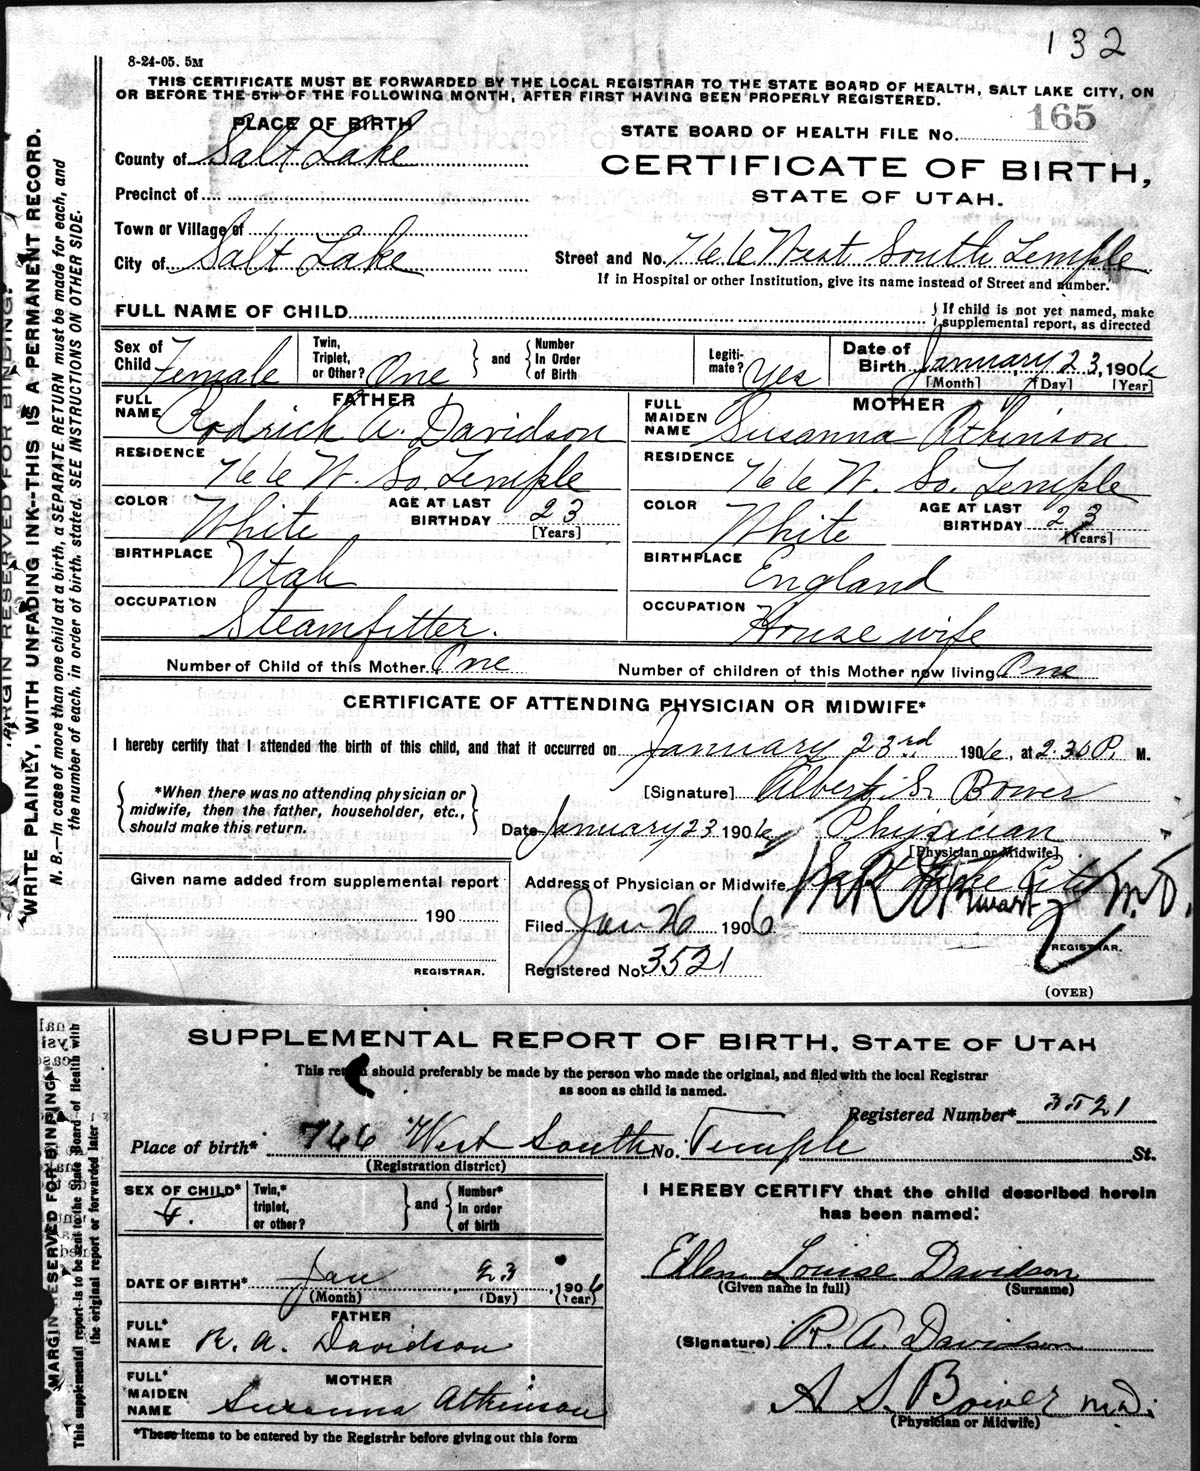 132
8-24-05. 5M
THIS CERTIFICATE MUST BE FORWARDED BY THE LOCAL REGISTRAR TO THE STATE BOARD OF HEALTH, SALT LAKE CITY, ON
OR BEFORE THE 5TH OF THE FOLLOWING MONTH, AFTER FIRST HAVING BEEN PROPERLY REGISTERED.
PLACE OF BIRTH
STATE BOARD OF HEALTH FILE No. 165
County of Salt Lake
CERTIFICATE OF BIRTH,
Precinct of
STATE OF UTAH.
Town or Village of
City of Salt Lake
Street and No. 766 West South Temple
If in Hospital or other Institution, give its name instead of Street and number.
FULL NAME OF CHILD
If child is not yet named, make
supplemental report, as directed
Sex of Child Female
Twin, Triplet, or Other? One and Number In Order of Birth
Legiti-mate? yes
Date of Birth January 23, 1906
[Month] [Day] [Year]
FATHER
MOTHER
FULL NAME Rodrick A. Davidson
FULL MAIDEN NAME Susanna Atkinson
RESIDENCE 766 W. So. Temple
RESIDENCE 766 W. So. Temple
COLOR White AGE AT LAST BIRTHDAY 23 [Years]
COLOR White AGE AT LAST BIRTHDAY 23 [Years]
BIRTHPLACE Utah
BIRTHPLACE England
OCCUPATION Steamfitter.
OCCUPATION House wife
Number of Child of this Mother One
Number of children of this Mother now living One
CERTIFICATE OF ATTENDING PHYSICIAN OR MIDWIFE*
I hereby certify that I attended the birth of this child, and that it occurred on January 23rd 1906, at 2.30 P. M.
*When there was no attending physician or
midwife, then the father, householder, etc.,
should make this return.
[Signature] Albert S. Bower
Date January 23 1906 Physician
[Physician or Midwife]
Given name added from supplemental report
190
REGISTRAR.
Address of Physician or Midwife Salt Lake City
Filed Jan 26 1906
M.D.
REGISTRAR.
Registered No. 3521
(OVER)
MARGIN RESERVED FOR BINDING.
WRITE PLAINLY, WITH UNFADING INK--THIS IS A PERMANENT RECORD.
N. B.—In case of more than one child at a birth, a SEPARATE RETURN must be made for each, and
the number of each, in order of birth, stated. SEE INSTRUCTIONS ON OTHER SIDE.
SUPPLEMENTAL REPORT OF BIRTH, STATE OF UTAH
This return should preferably be made by the person who made the original, and filed with the local Registrar
as soon as child is named.
Registered Number* 3521
Place of birth* 766 West South No. Temple St.
(Registration district)
SEX OF CHILD* F.
Twin,* triplet, or other? and Number* In order of birth
I HEREBY CERTIFY that the child described herein
has been named:
Ellen Louise Davidson
(Given name in full) (Surname)
DATE OF BIRTH* Jan 23 1906
(Month) (Day) (Year)
FATHER
FULL* NAME R. A. Davidson
(Signature) R. A. Davidson
MOTHER
FULL* MAIDEN NAME Susanna Atkinson
A S. Bower M.D.
(Physician or Midwife)
*These items to be entered by the Registrar before giving out this form
MARGIN RESERVED FOR BINDING.
This supplemental report is to be sent to the State Board of Health with
the original report or forwarded later